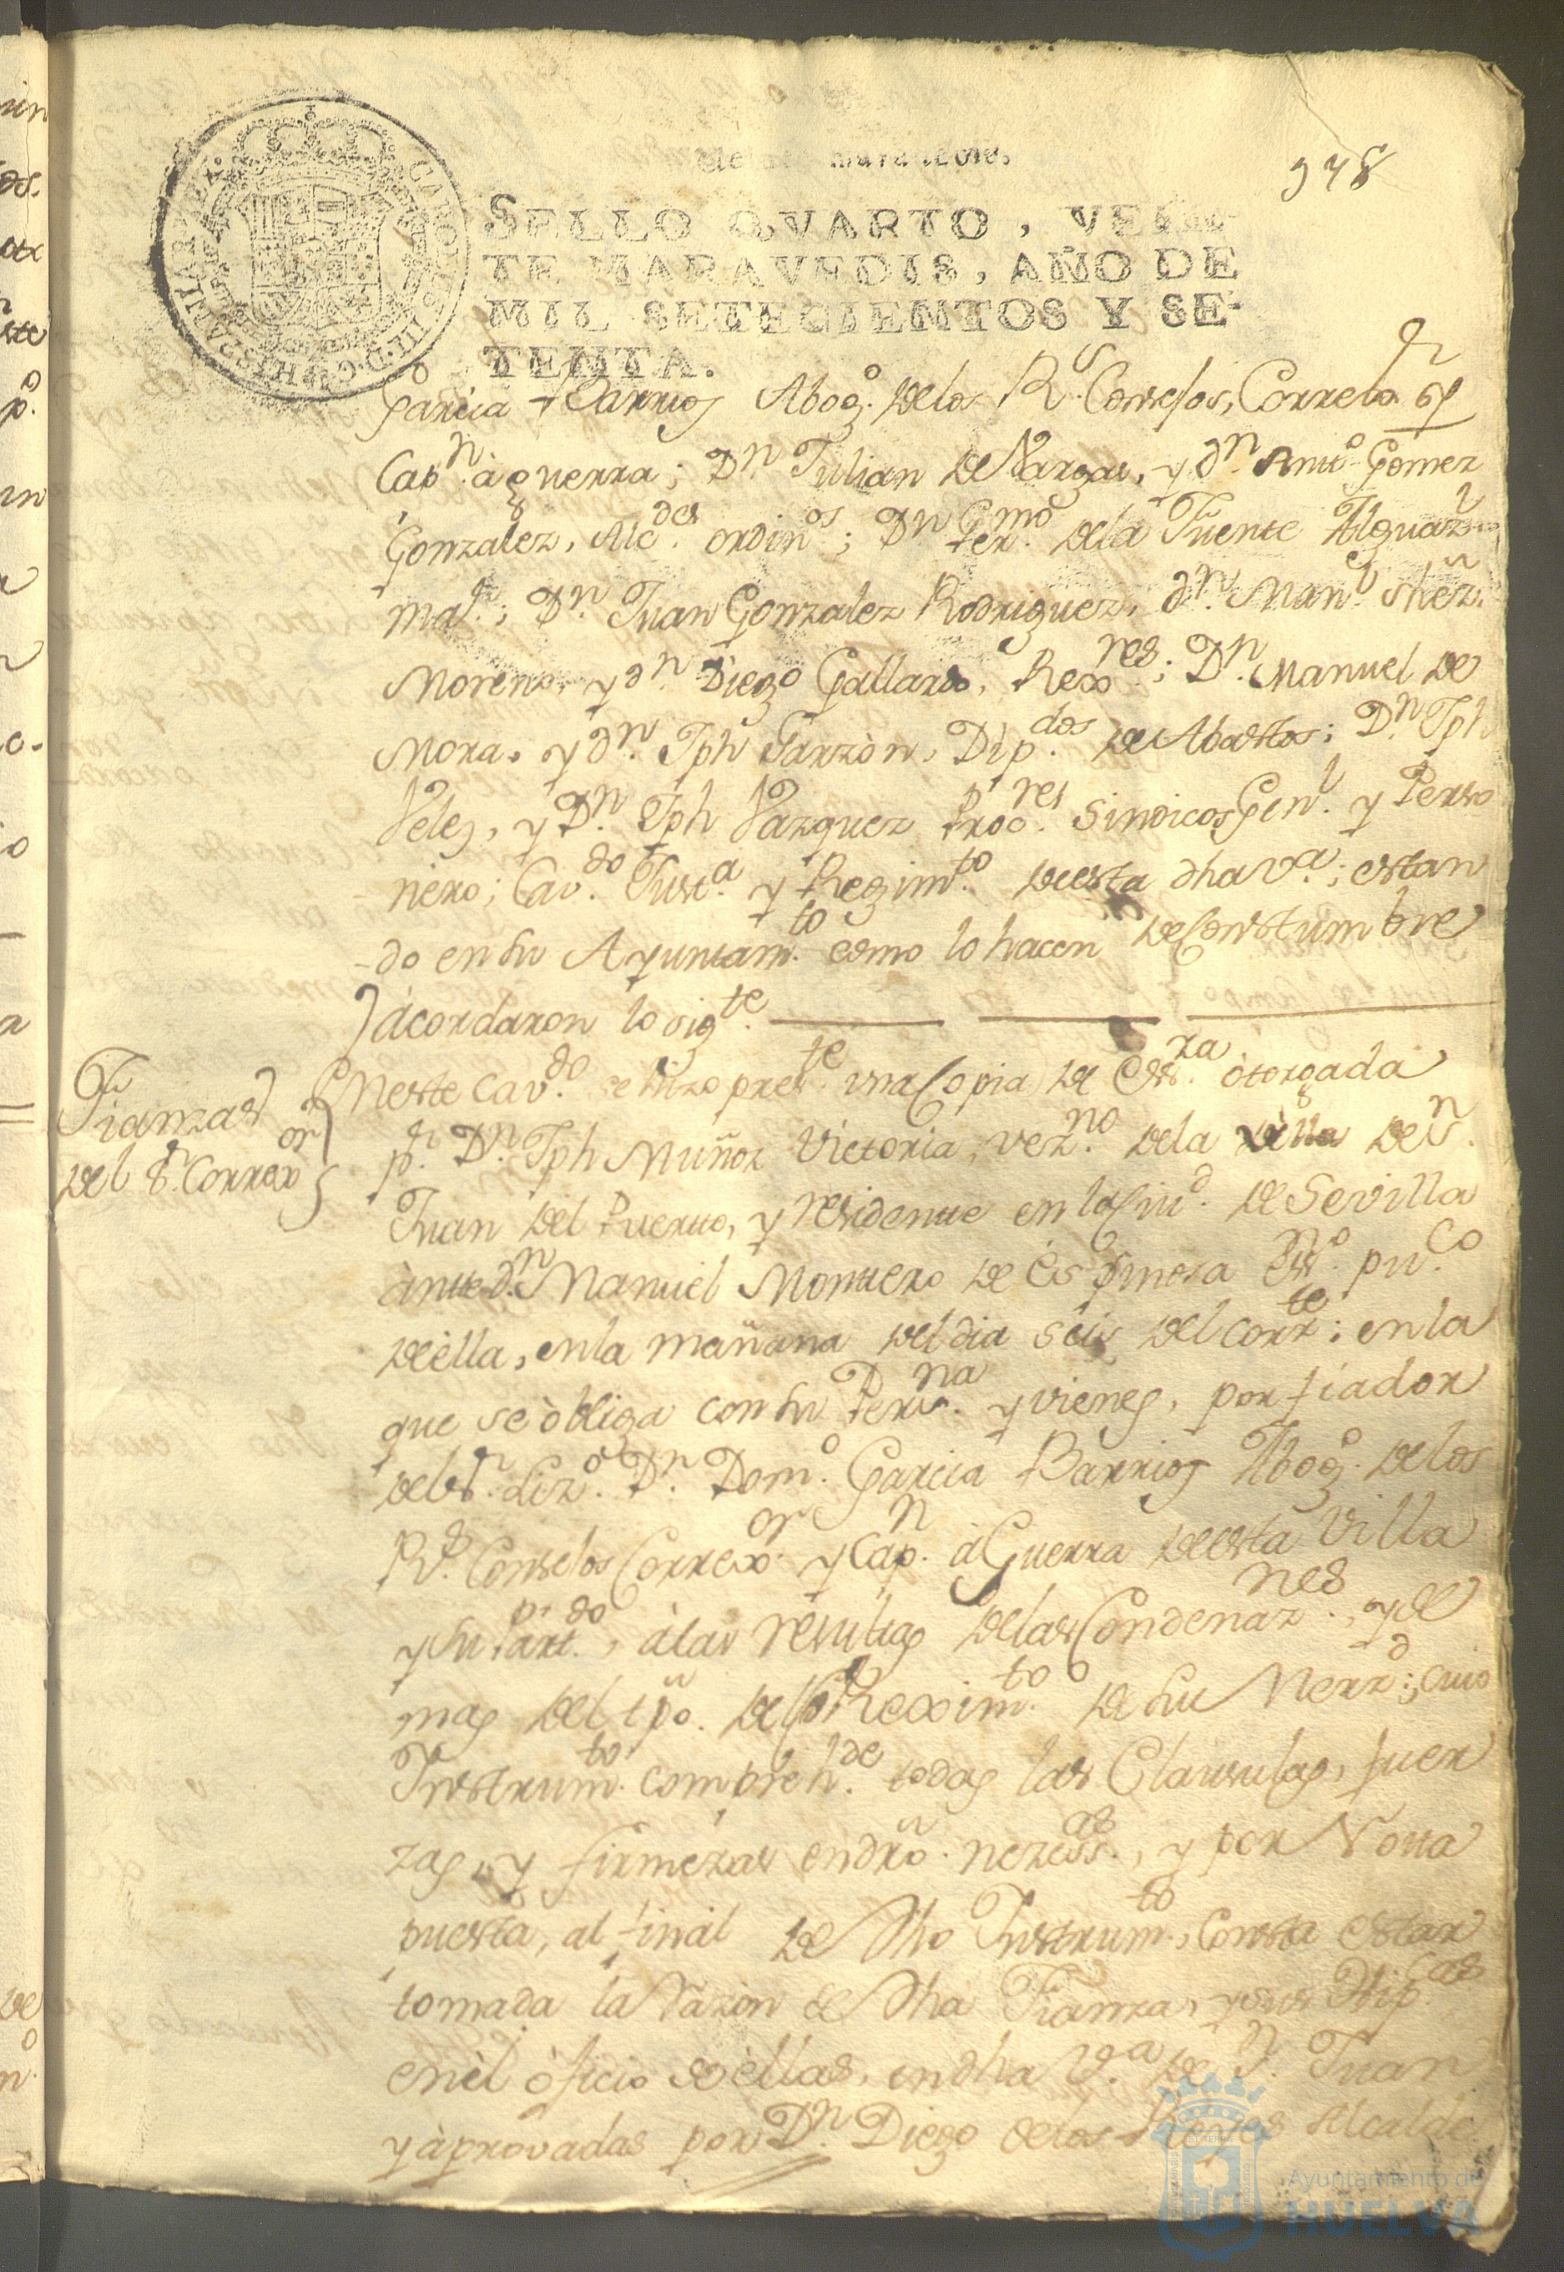 978
SELLO QVARTO, VEIN-
TE MARAVEDIS, AÑO DE
MIL SETECIENTOS Y SE-
TENTA.
HISPANIARVM REX
CAROLVS III D G
Garcia Barrios Abog.º delos R.s Conseˢjos, Corre
Cap.n à guerra; D.n Julian de Vargas, y d.n Ant.º Gomez
Gonzalez, Alc.des ordin.os; D.n Ger.mo dela Fuente Alguaz.l
ma.r; D.n Juan Gonzalez Rodriguez, d.n Man.l Shẽz.
Moreno, y d.n Diego Gallardo, Rex.res; D.n Manuel de
Mora, y d.n Jph Garzòn, Dip.dos de Abastos; D.n Jph
Velez, y D.n Jph Vazquez Proc.res Sindicos Gen.l y Perso
nero; Cav.do Just.a y Regim.to de esta dha V.a; estan
-do en su Ayuntam.to como lo hacen de Constumbre
àcordaron lo sig.te
Fianzas
del S.r Correx.or
Eneste Cav.do se hizo pres.te una Copia de Ess.ra òtorgada
p.r D.n Jph Muñoz Victoria, vez.no dela villa de S.n
Juan del Puerto, y residente en la Ciu.d de Sevilla
ànte d.n Manuel Montero de Espinosa Ess.no pu.co
de èlla, en la mañana del dia seis del corr.te; en la
que se òbliga con su Pers.na y vienes, por fiador
del S.r Liz.do D.n Dom.º Garcia Barrios Abog.º delos
R.s Consejos Correx.or y Cap.n à Guerra de esta Villa
y su Part.do, àlas resultas delas Condenaz.nes, y de
mas del tpõ. del Rexim.to de su Merz.d; cuio
Instrum.to compreh.de todas las Clausulas, fuer
zas, y firmezas en drõ. nezess.as, y por Notta
puesta, al final de dho Instrum.to, Consta estar
tomada la Razon de dha Fianza, y sus Hip.cas
en èl òficio de èllas, en dha V.a de S.n Juan
y àprovadas por D.n Diego delos Reyes Alcalde
Ayuntamiento de
HUELVA